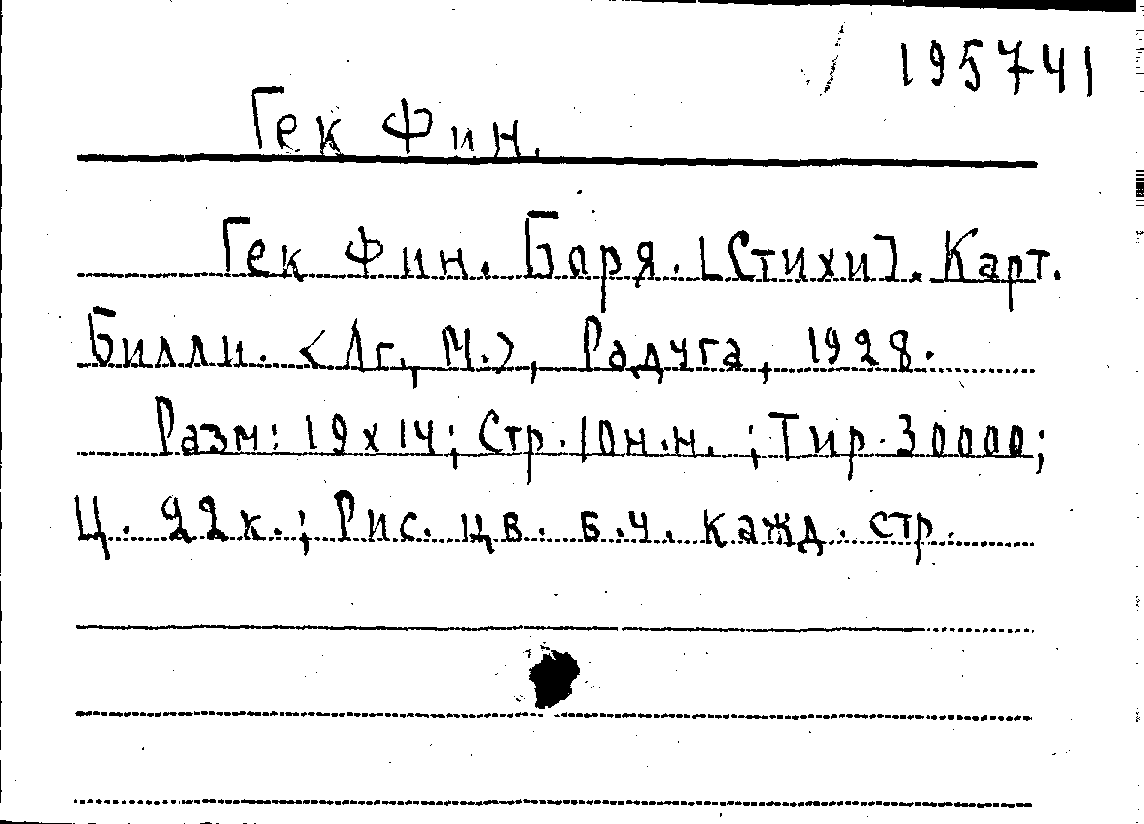 195741
Гек Фин.
Гек Фин. Боря. [Стихи]. Карт.
Билли. <Лг., М.>, Радуга, 1928.
Разм: 19x14; Стр. 10 н.н. ; Тир. 30000;
Ц. 22 к.; Рис. цв. б.ч. кажд. стр.